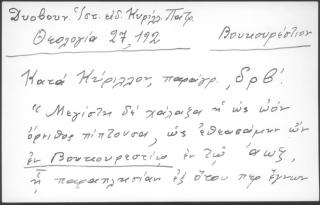 Δυοβουν. Ἱστ. εἰδ. Κυρίλλ. Πατρ.
Θεολογία 27, 192 Βουκουρέστιον
Κατὰ Κύριλλον, παράγρ. ͵ρβ΄.
"Μεγίστη δὲ χάλαζα ἡ ὡς ὠὸν
ὄρνιθος πίπτουσα, ὡς ἐθεασάμην ὢν
ἐν Βουκουρεστίῳ ἐν τῷ ͵αωξ,
ἢ παραπλησίαν ἐξ ὅτου περ ἔγνων